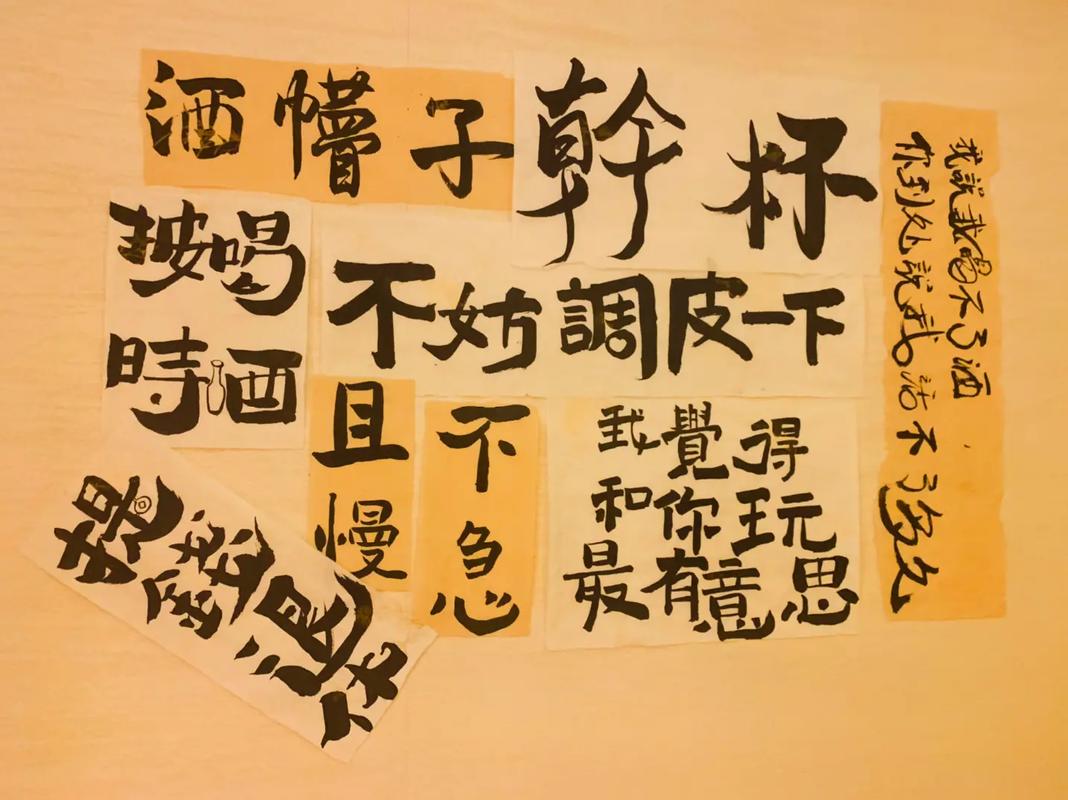 酒懵子
幹杯
按時
喝酒
不妨調皮一下
且慢
不急
我覺得
和你玩
最有意思
提錢退休
我說我喝不了酒
你到处說我活不了多久